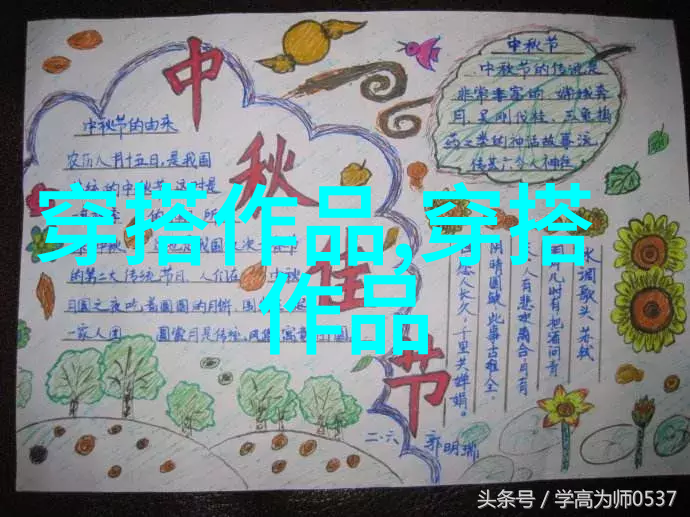 中秋佳节
中秋节的由来
农历八月十五日,是我国
的中秋节
的第二大传统节日,人们在 中秋
月圆之夜吃着圆圆的月饼,
一家人团 圆
中秋节
中秋节的传说是
非常丰富的,嫦娥奔
月,吴刚伐桂,玉兔捣
药之类的神话故事流
水调歌头 苏轼
明月几时有把酒问青
人有悲欢离合月有
阴晴圆缺此事古难全。
但愿人长久,千里共婵娟。
二·六 郭明瑞
穿搭作品,穿搭
作品
头条号/学高为师0537